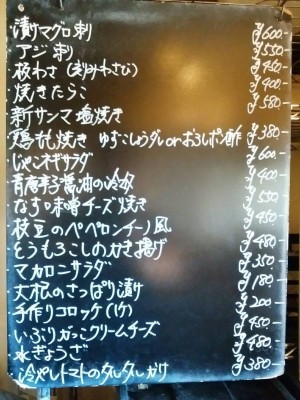 ・漬けマグロ刺 ¥600-
・アジ刺り ¥550-
・板わさ(刻みわさび) ¥450-
・焼きたらこ ¥400-
新サンマ塩焼き ¥580-
・鶏もも焼き ゆずこしょうダレorおろしポン酢 ¥380-
・じゃこネギサラダ ¥600-
青唐辛子醤油の冷奴 ¥400-
・なす味噌チーズ焼き ¥550-
・枝豆のペペロンチーノ風 ¥450-
とうもろこしのかき揚げ ¥480-
・マカロニサラダ ¥350-
・大根のさっぱり漬 ¥180-
・手作りコロッケ(1ケ) ¥200-
・いぶりがっこクリームチーズ ¥450-
・水ぎょうざ ¥480-
・冷やしトマトのタルタルがけ ¥380-